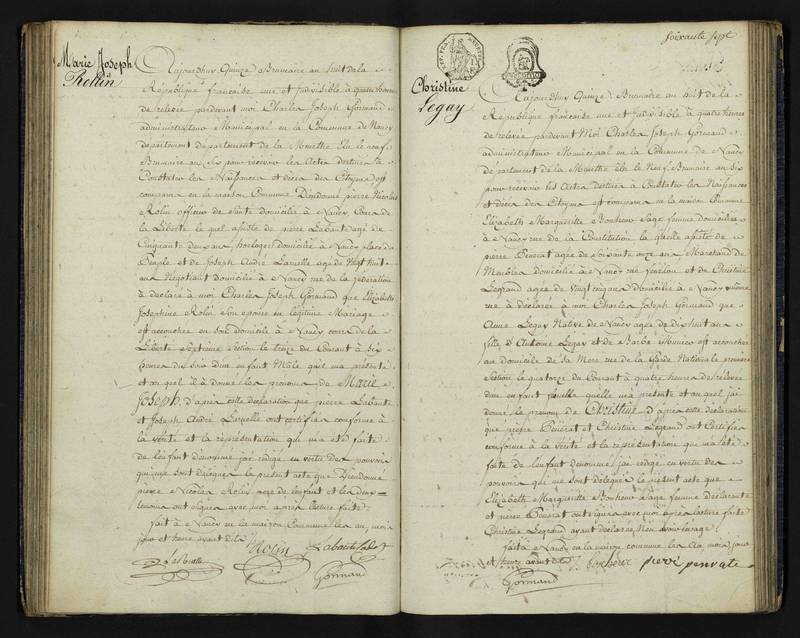 Marie Joseph
Rollin
Aujourdhuy Quinze Brumaire an huit de la
République française une et Indivisible à quatre heures
de relevée pardevant moi Charles Joseph Gormand
administrateur Municipal en la Commune de Nancy
département de la Meurthe Elu le neuf
Brumaire an six pour recevoir les Actes destinés à
Constater les Naissances et décès des Citoyens est
comparu en la maison Commune Dieudonné pierre Nicolas
Rolin officier de santé domicilié à Nancy Cours de
la Liberté le quel assisté de pierre Labauté agé de
Cinquante deux ans horloger domicilié à Nancy place du
Peuple et de Joseph André Laruelle agé de Vingt huit
ans Négotiant Domicilié à Nancy rue de la fédération
à déclaré à moi Charles Joseph Gormand que Elizabeth
Josephine son epouse en légitime Mariage
est accouchée en son domicile à Nancy cours de la
Liberté Septieme Section le treize du Courant à six
heures du soir d'un enfant Mâle quil ma présenté
et au quel il à donné les prénoms de Marie
Joseph, d'après cette déclaration que pierre Labauté
et Joseph André Laruelle ont certifiée conforme à
la vérité et la représentation qui ma été faite
de lenfant dénommé jai rédigé en vertu des pouvoirs
qui me sont délégués le présent acte que Dieudonné
pierre Nicolas Rolin pere de lenfant et les deux
temoins ont signés avec moi après lecture faite
fait à Nancy en la maison Commune les an mois
jour et heure avant dits
Rolin Labauté
Laruelle
Gormand
soixante sept
Christine
Legay
Aujourdhuy Quinze Brumaire an huit de la
République française une et Indivisible à quatre heures
de relevée pardevant Moi Charles Joseph Gormand
administrateur Municipal en la Commune de Nancy
departement de la Meurthe élu le Neuf Brumaire an six
pour recevoir les Actes destinés à Constater les Naissances
et décès des Citoyens est comparu en la maison Commune
Elizabeth Margueritte Bonheur Sage femme domiciliée
à Nancy rue de la Constitution la quelle assistée de
pierre agé de soixante onze ans Marchand de
Meubles domicilié à Nancy rue et de Christine
Legrand agée de vingt cinq ans Domiciliée à Nancy même
rue à déclarée à moi Charles Joseph Gormand que
Anne Legay Native de Nancy agée de dix huit ans
fille d'Antoine Legay et de Barbe est accouchée
au domicile de sa Mere rue de la Garde Nationale premiere
Section le quatorze du Courant à quatre heures de relevée
dun enfant femelle quelle ma présenté et au quel jai
donné le prénom de Christine d'après cette déclaration
que pierre et Christine Legrand ont Certifiée
conforme à la Vérité et la représentation qui ma été
faite de lenfant dénommé, jai rédigé en vertu des
pouvoirs qui me sont délégués le présent acte que
Elizabeth Marguerite Bonheur Sage femme déclarante
et pierre ont signés avec moi après lecture faite
Christine Legrand ayant déclaré Non avoir l'usage
fait à Nancy en la maison commune les an mois jour
et heure avant dits bonheur pierre penrate
Gormand